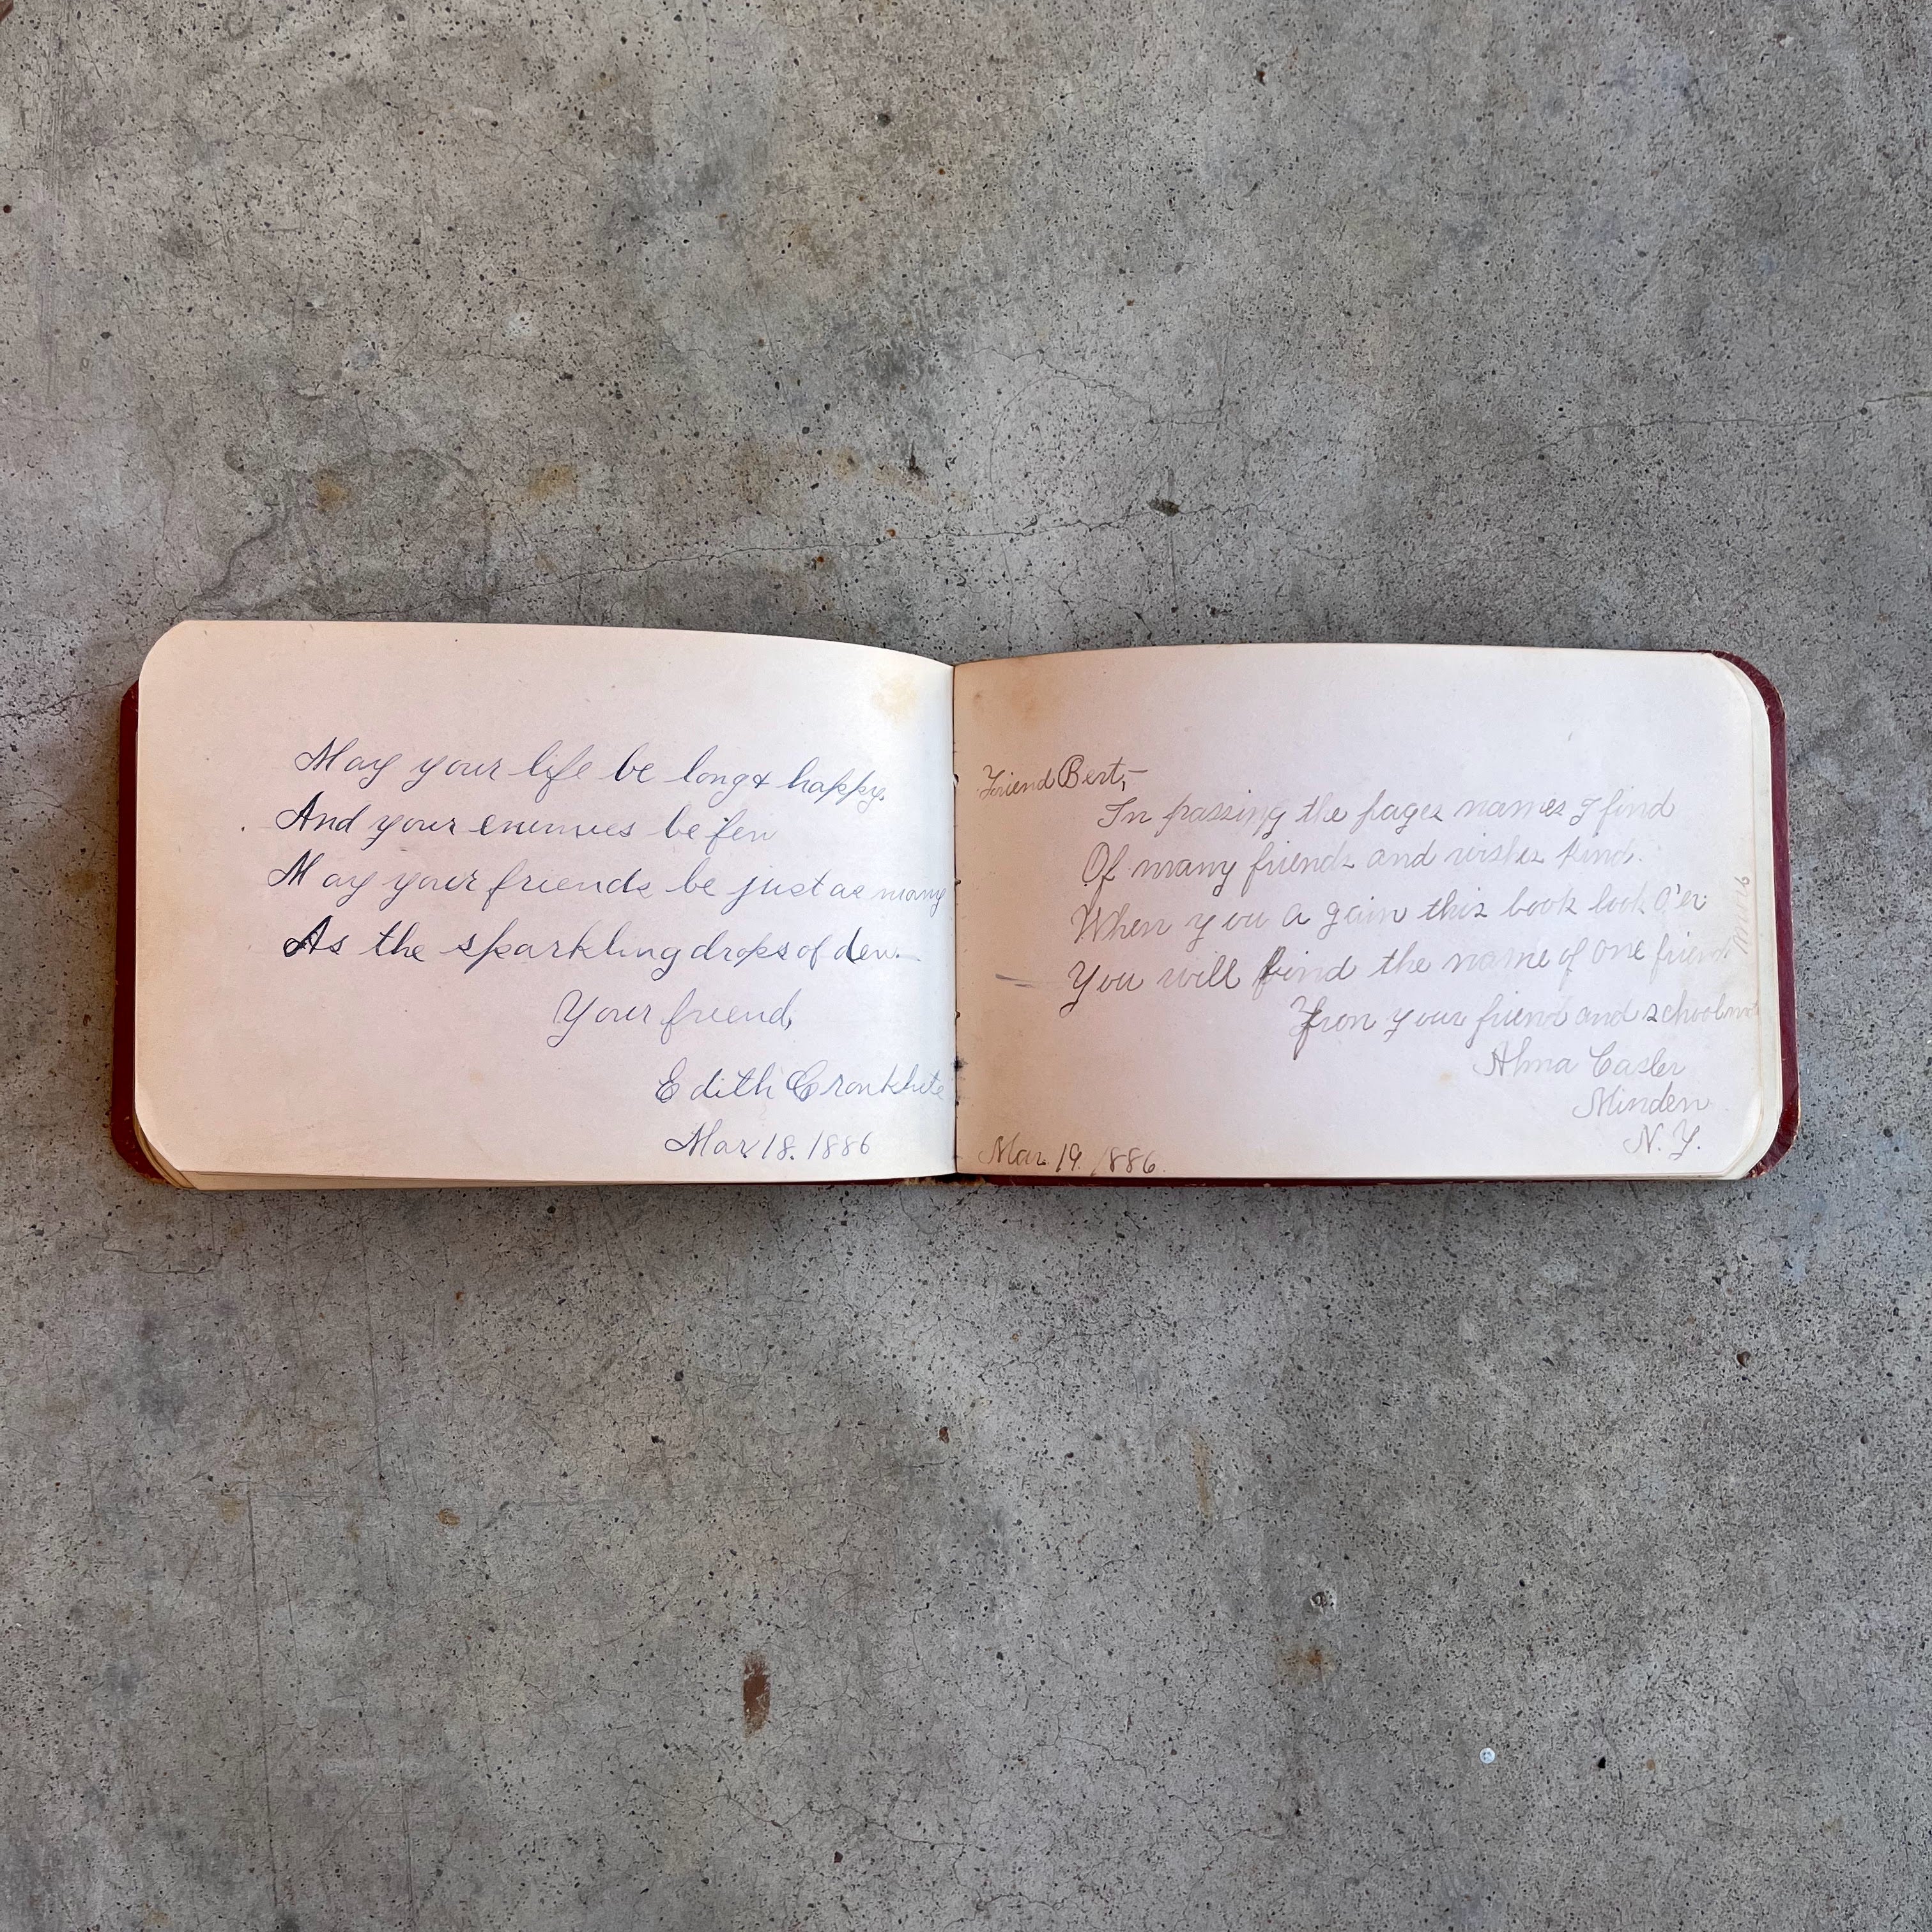 May your life be long & happy,
And your enemies be few
May your friends be just as many
As the sparkling drops of dew.
Your friend,
Edith Cronkhite
Mar. 18. 1886
Friend Bert,—
In passing the pages names I find
Of many friends and wishes kind.
When you a gain this book look o'er
You will find the name of one friend
more
From your friend and schoolmate
Alma Casler
Minden
N. Y.
Mar. 19. 1886.